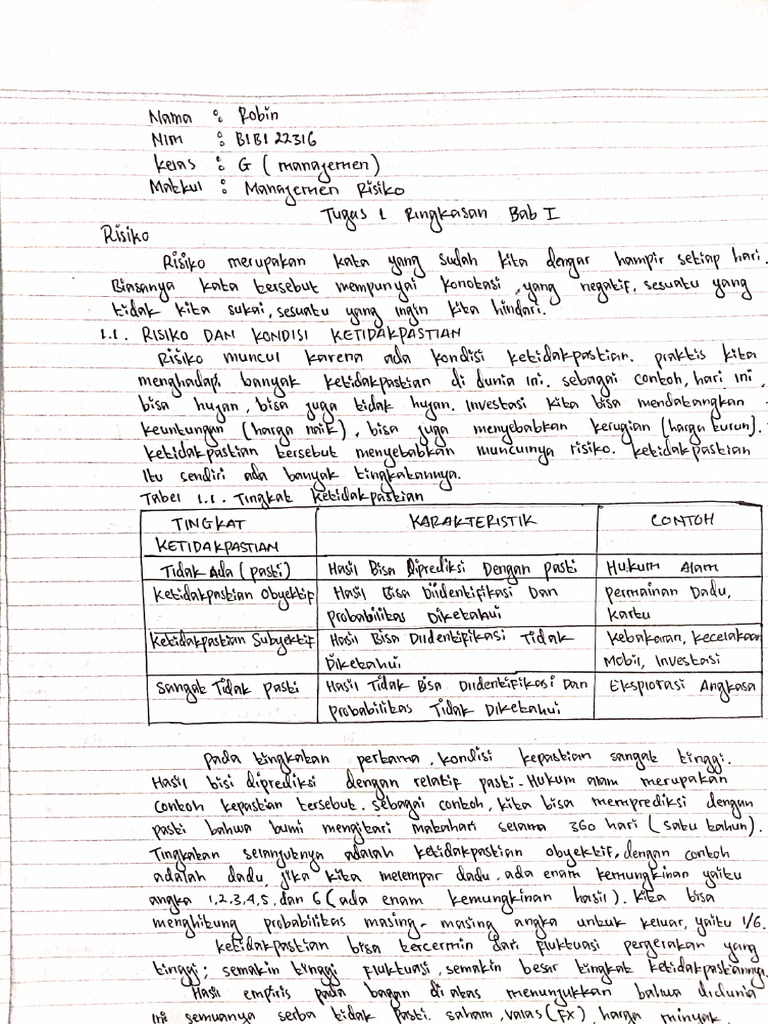 Nama : Robin
NIM : B1B1 22316
Kelas : G ( manajemen )
Matkul : Manajemen Risiko
Tugas 1 Ringkasan Bab I
Risiko
Risiko merupakan kata yang sudah kita dengar hampir setiap hari.
Biasanya kata tersebut mempunyai konotasi yang negatif, sesuatu yang
tidak kita sukai, sesuatu yang ingin kita hindari.
1.1. RISIKO DAN KONDISI KETIDAKPASTIAN
Risiko muncul karena ada kondisi ketidakpastian. praktis kita
menghadapi banyak ketidakpastian di dunia ini. sebagai contoh, hari ini,
bisa hujan, bisa juga tidak hujan. Investasi kita bisa mendatangkan
keuntungan (harga naik), bisa juga menyebabkan kerugian (harga turun).
ketidakpastian tersebut menyebabkan munculnya risiko. ketidakpastian
itu sendiri ada banyak tingkatannya.
Tabel 1.1. Tingkat ketidakpastian
TINGKAT KETIDAKPASTIAN KARAKTERISTIK CONTOH
Tidak Ada (pasti) Hasil Bisa Diprediksi Dengan pasti Hukum Alam
Ketidakpastian Obyektif Hasil Bisa Diidentifikasi Dan probabilitas Diketahui permainan Dadu, kartu
Ketidakpastian Subyektif Hasil Bisa Diidentifikasi Tidak Diketahui Kebakaran, kecelakaan Mobil, Investasi
Sangat Tidak pasti Hasil Tidak Bisa Diidentifikasi Dan probabilitas Tidak Diketahui Eksplorasi Angkasa
pada tingkatan pertama, kondisi kepastian sangat tinggi.
Hasil bisi diprediksi dengan relatif pasti. Hukum alam merupakan
contoh kepastian tersebut. sebagai contoh, kita bisa memprediksi dengan
pasti bahwa bumi mengitari matahari selama 360 hari (satu tahun).
Tingkatan selanjutnya adalah ketidakpastian obyektif, dengan contoh
adalah dadu, jika kita melempar dadu, ada enam kemungkinan yaitu
angka 1,2,3,4,5, dan 6 (ada enam kemungkinan hasil). kita bisa
menghitung probabilitas masing-masing angka untuk keluar, yaitu 1/6.
ketidakpastian bisa tercermin dari fluktuasi pergerakan yang
tinggi; semakin tinggi fluktuasi, semakin besar tingkat ketidakpastiannya.
Hasil empiris pada bagan di atas menunjukkan bahwa didunia
ini semuanya serba tidak pasti. saham, valas (FX), harga minyak,